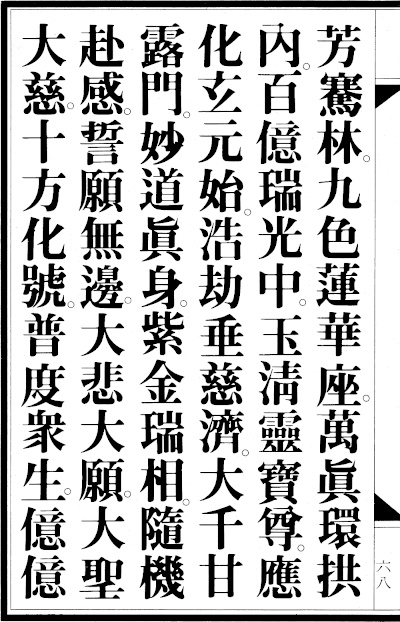 芳騫林。九色蓮華座。萬眞環拱
內。百億瑞光中。玉清靈寶尊。應
化玄元始。浩劫垂慈濟。大千甘
露門。妙道眞身。紫金瑞相。隨機
赴感。誓願無邊。大悲大願。大聖
大慈。十方化號。普度衆生。億億
六八